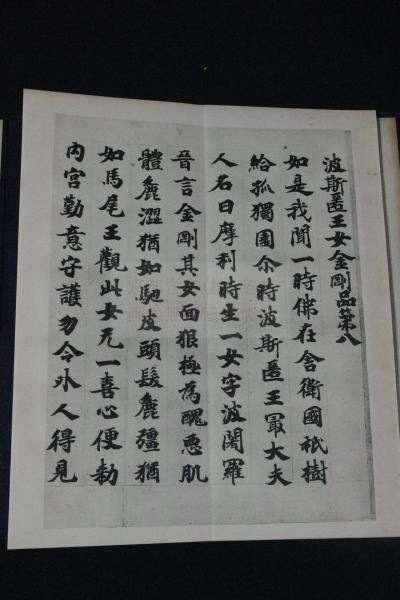 波斯匿王女金剛品第八
如是我聞一時佛在舍衛國祇樹
給孤獨園尒時波斯匿王冣大夫
人名曰摩利時生一女字波闍羅
晉言金剛其女面狠極為醜惡肌
體麁澀猶如駞皮頭髮麁彊猶
如馬尾王觀此女无一喜心便勑
内宮勤意守護勿令外人得見